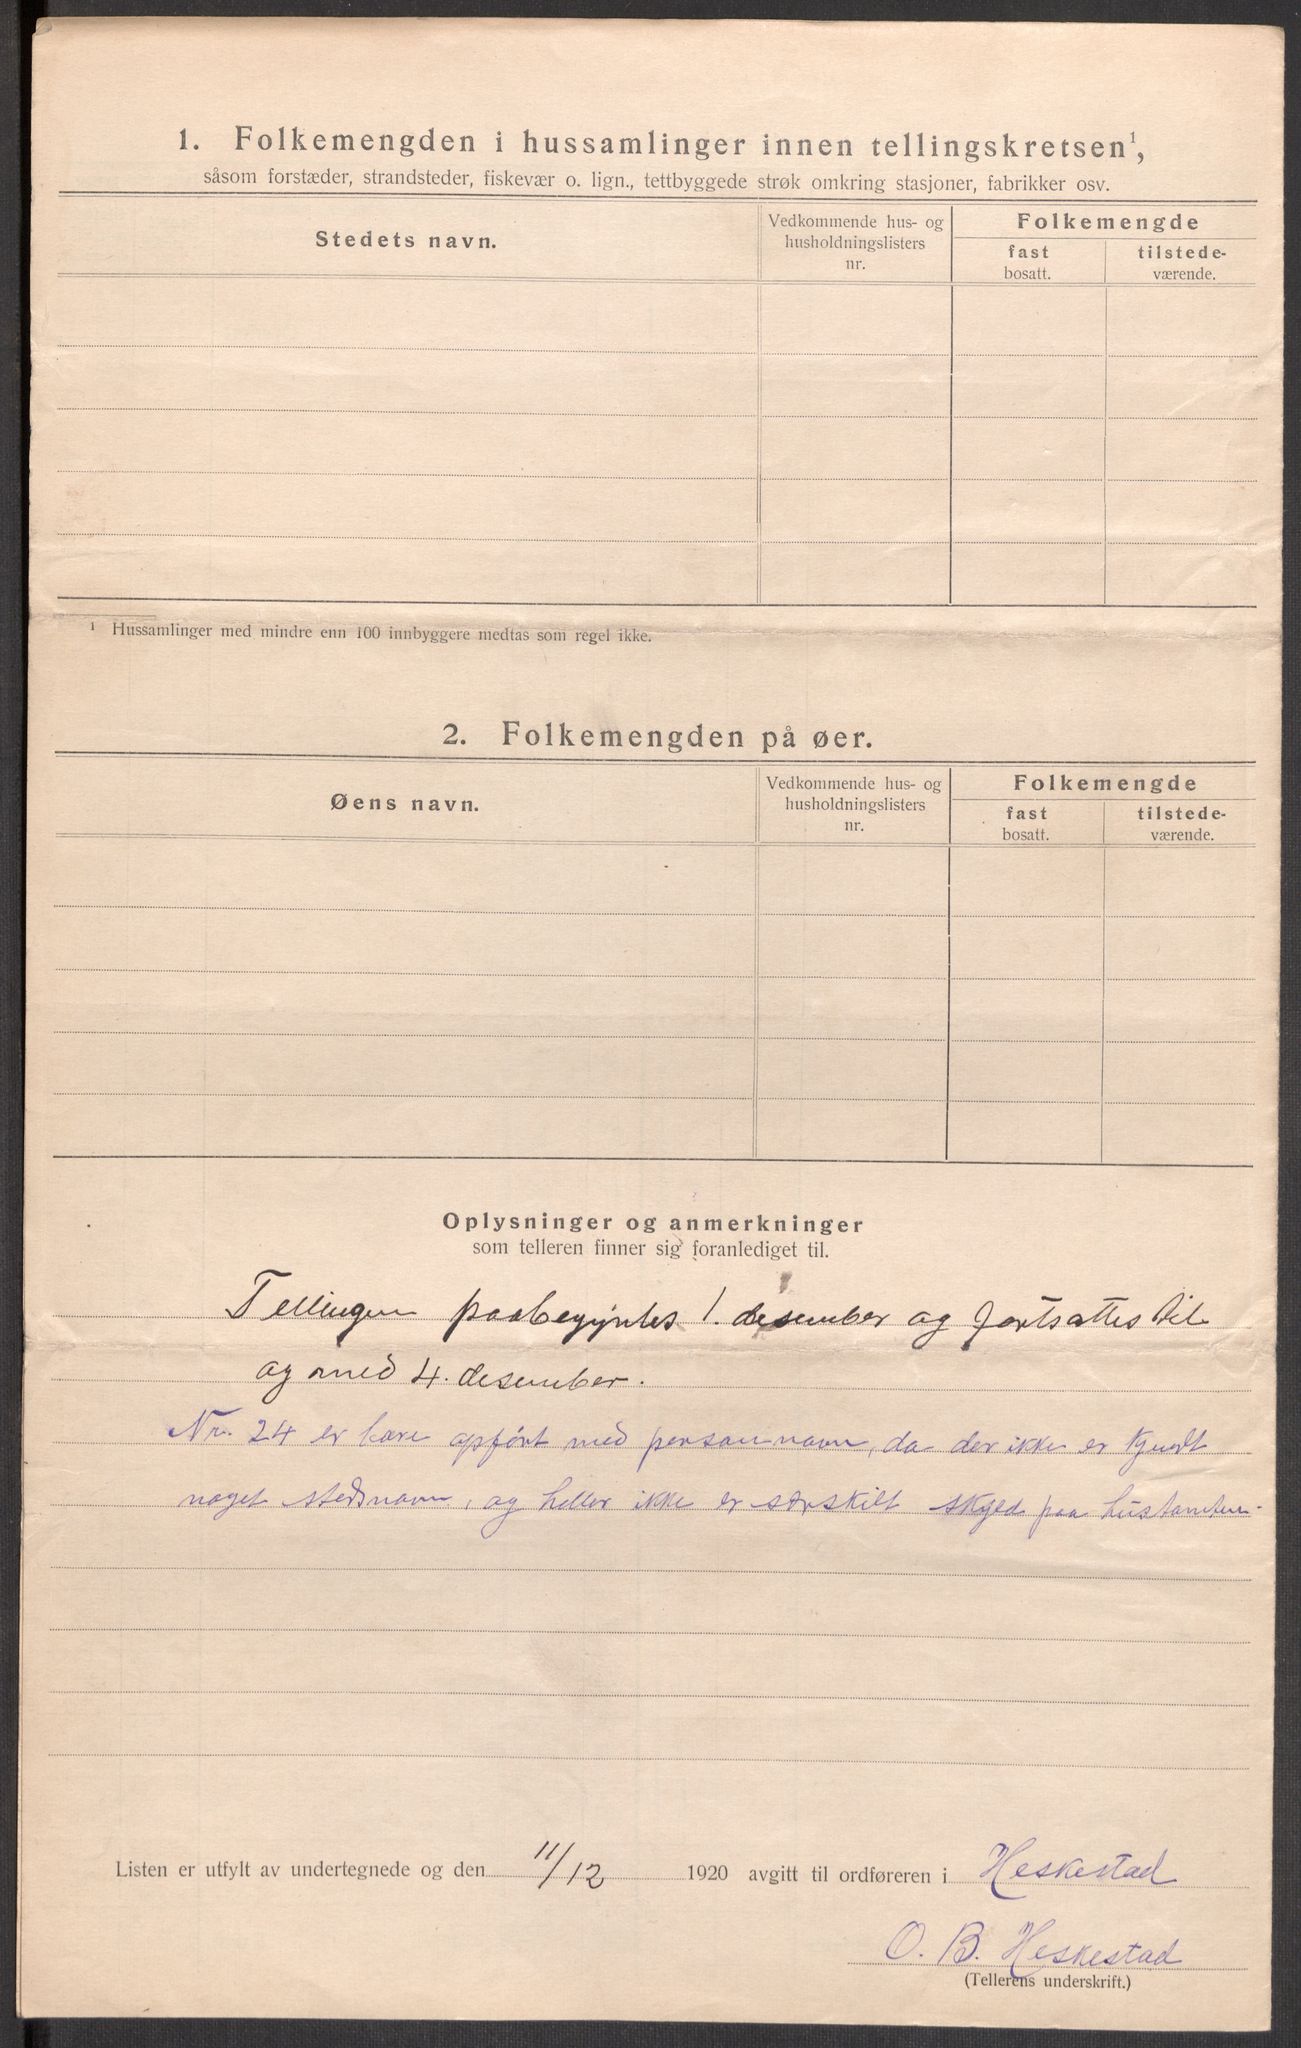 1. Folkemengden i hussamlinger innen tellingskretsen¹,
såsom forstæder, strandsteder, fiskevær o. lign., tettbyggede strøk omkring stasjoner, fabrikker osv.
Stedets navn.
Vedkommende hus- og
husholdningslisters
nr.
Folkemengde
fast
bosatt.
tilstede-
værende.
¹ Hussamlinger med mindre enn 100 innbyggere medtas som regel ikke.
2. Folkemengden på øer.
Øens navn.
Vedkommende hus- og
husholdningslisters
nr.
Folkemengde
fast
bosatt.
tilstede-
værende.
Oplysninger og anmerkninger
som telleren finner sig foranlediget til.
Tellingen paabegyntes 1. desember og fortsattes til
og med 4. desember.
Nr. 24 er bare opført med personnavn, da der ikke er kjendt
noget stedsnavn, og heller ikke er særskilt skyld paa
Listen er utfylt av undertegnede og den 11/12 1920 avgitt til ordføreren i Heskestad
O. B. Heskestad
(Tellerens underskrift.)